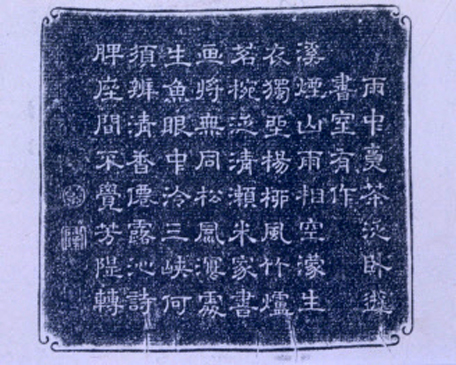 雨中烹茶泛臥遊
書室有作
溪煙山雨相空濛生
衣獨坐楊柳風竹爐
茗椀泛清瀨米家書
畫將無同松風瀉處
生魚眼中泠三峽何
須辨清香僊露沁詩
脾座間不覺芳隄轉